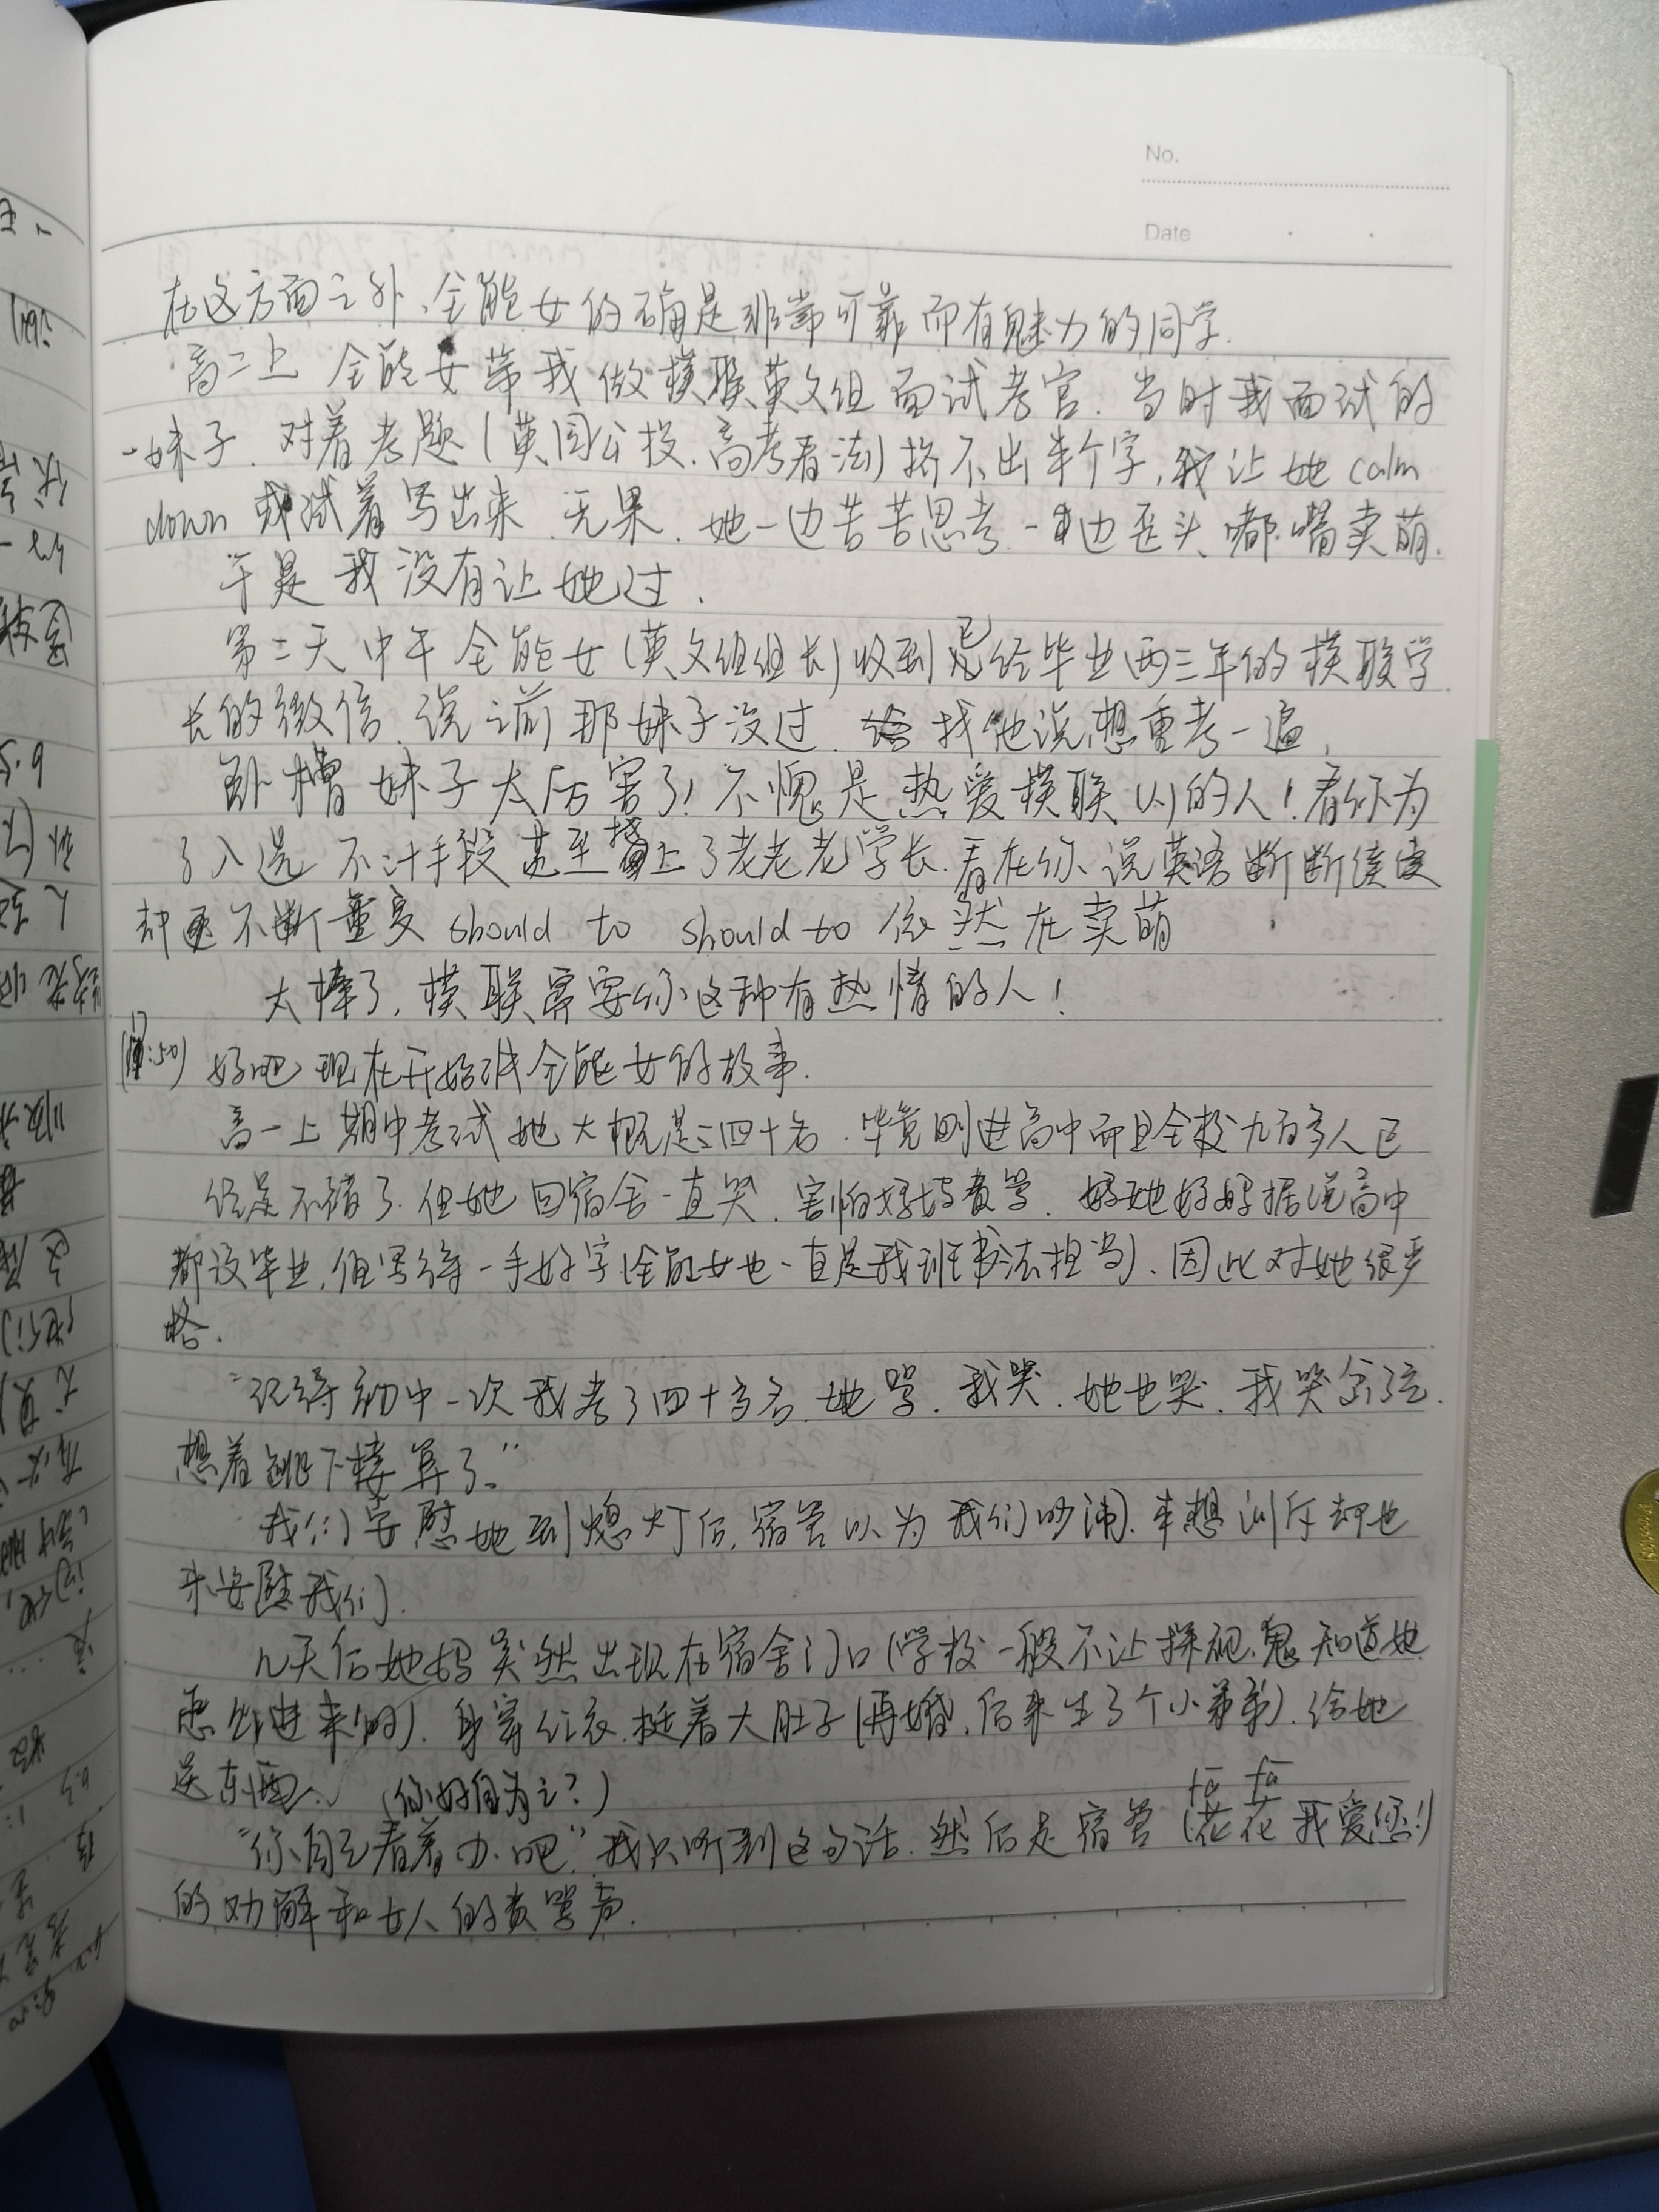 No.
Date
在这方面之外、全能女的确是非常可靠而有魅力的同学.
高二上 全能女带我做模联英文组面试考官. 当时我面试的
一妹子. 对着考题(英国公投、高考看法)挤不出半个字, 我让她 calm
down 或试着写出来. 无果. 她一边苦苦思考. 一边歪头嘟嘴卖萌.
于是我没有让她过.
第二天中午全能女(英文组组长)收到已经毕业两三年的模联学
长的微信. 说之前那妹子没过. 找他说想重考一遍.
卧槽 妹子太厉害了! 不愧是热爱模联 的人! 看你为
了入选 不计手段 甚至 上了老老老学长. 看在你说英语断断续续
却不断重复 should to should to 依然在卖萌
太棒了, 模联需要你这种有热情的人!
:50) 好吧 现在开始讲全能女的故事.
高一上期中考试她大概是三四十名. 毕竟刚进高中而且全校九百多人已
经是不错了. 但她回宿舍一直哭. 害怕妈妈责骂. 她妈妈据说高中
都没毕业. 但写得一手好字(全能女也一直是我班书法担当). 因此对她很严
格.
"记得初中一次我考了四十多名. 她骂. 我哭. 她也哭. 我哭
想着跳下楼算了."
我们安慰她到熄灯后. 宿管以为我们吵闹. 本想训斥却也
来安慰我们.
几天后她妈突然出现在宿舍门口(学校一般不让探视. 鬼知道她
怎么进来的). 身穿红衣. 挺着大肚子(再婚. 后来生了个小弟弟). 给她
送东西. (你好自为之?)
fā fā
"你自己看着办吧." 我只听到这句话. 然后是宿管 (花花我爱您!)
的劝解和女人的责骂声.